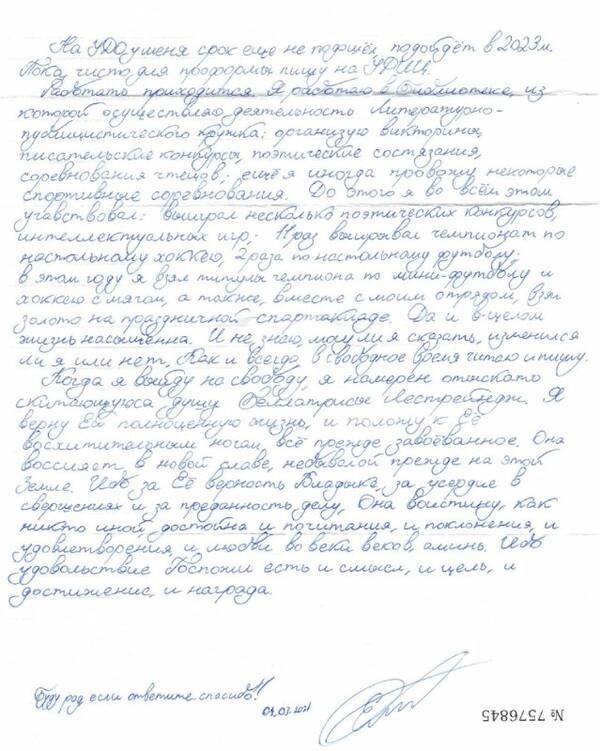 На УДО у меня срок ещё не подошёл, подойдёт в 2023м.
Пока, чисто для проформы пишу на УДО.
Работать приходится. Я работаю в библиотеке, из
которой осуществляю деятельность Литературно-
публицистического кружка: организую викторины,
писательские конкурсы, поэтические состязания,
соревнования чтецов; ещё я иногда провожу некоторые
спортивные соревнования. До этого я во всём этом
учавствовал: выиграл несколько поэтических конкурсов,
интеллектуальных игр; 11 раз выигрывал чемпионат по
настольному хоккею, 2 раза по настольному футболу;
в этом году я взял титулы чемпиона по мини-футболу и
хоккею с мячом, а также, вместе с моим отрядом, взял
золото на праздничной спартакиаде. Да и в целом
жизнь насыщенна. И не знаю, могу ли я сказать, изменился
ли я или нет. Как и всегда, в свободное время читаю и пишу.
Когда я выйду на свободу, я намерен отыскать
скитающуюся душу Беллатрисы Лестрейндж. Я
верну Ей полноценную жизнь, и положу к Её
восхитительным ногам, всё прежде завоёванное. Она
воссияет, в новой славе, небывалой прежде на этой
Земле. Ибо за Её верность Владыке, за усердие в
свершениях и за преданность делу, Она воистину, как
никто иной, достойна и почитания, и поклонения, и
удовлетворения, и любви во веки веков, аминь. Ибо
удовольствие Госпожи есть и смысл, и цель, и
достижение, и награда.
Буду рад если ответите. спасибо!!
№ 7576845